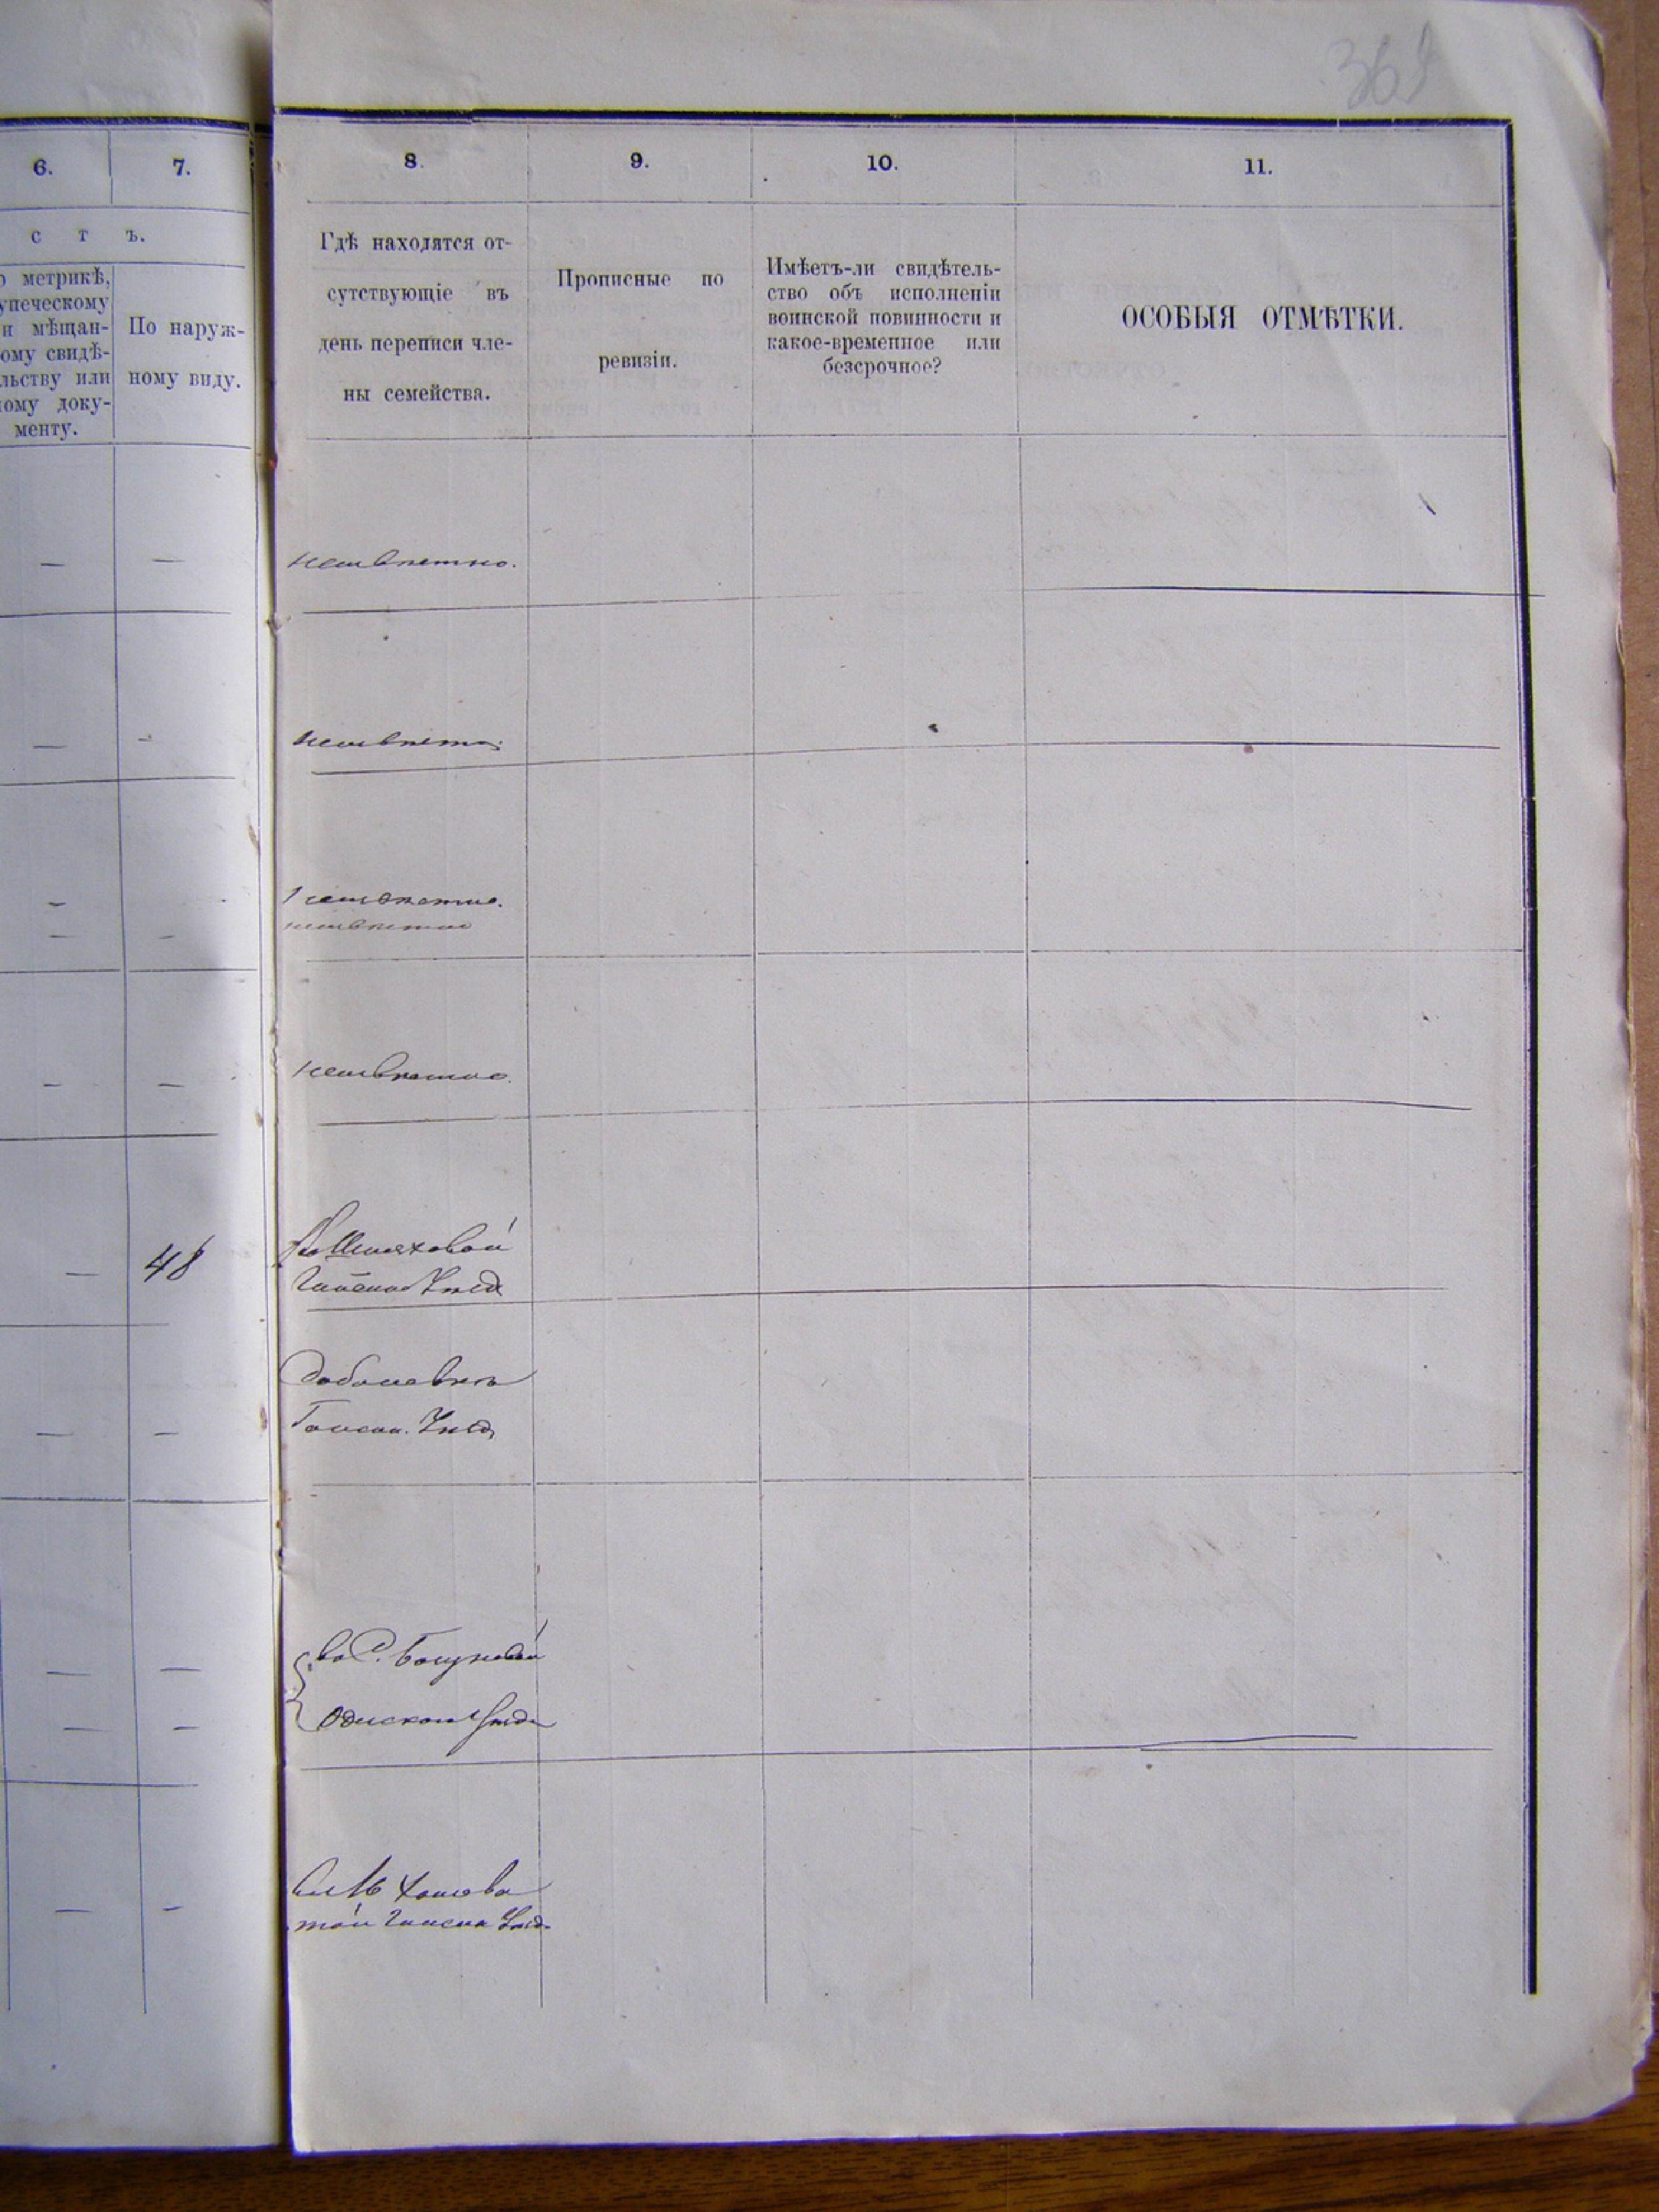 369
6.
7.
8.
9.
10.
11.
с т ъ.
о метрикѣ,
упеческому
и мѣщан-
ому свидѣ-
льству или
ному доку-
менту.
По наруж-
ному виду.
Гдѣ находятся от-
сутствующіе въ
день переписи чле-
ны семейства.
Прописные по
ревизіи.
Имѣетъ-ли свидѣтель-
ство объ исполненіи
воинской повинности и
какое-временное или
безсрочное?
ОСОБЫЯ ОТМѢТКИ.
— — неизвѣстно.
— - неизвѣстно
— неизвѣстно.
— - неизвѣстно
— — неизвѣстно.
— 48
Уѣзд
— —
Гайсин. Уѣзд
— — во
— — Одесском Уѣзд
— - Вм М Хощева
той Гайсин Уѣзд